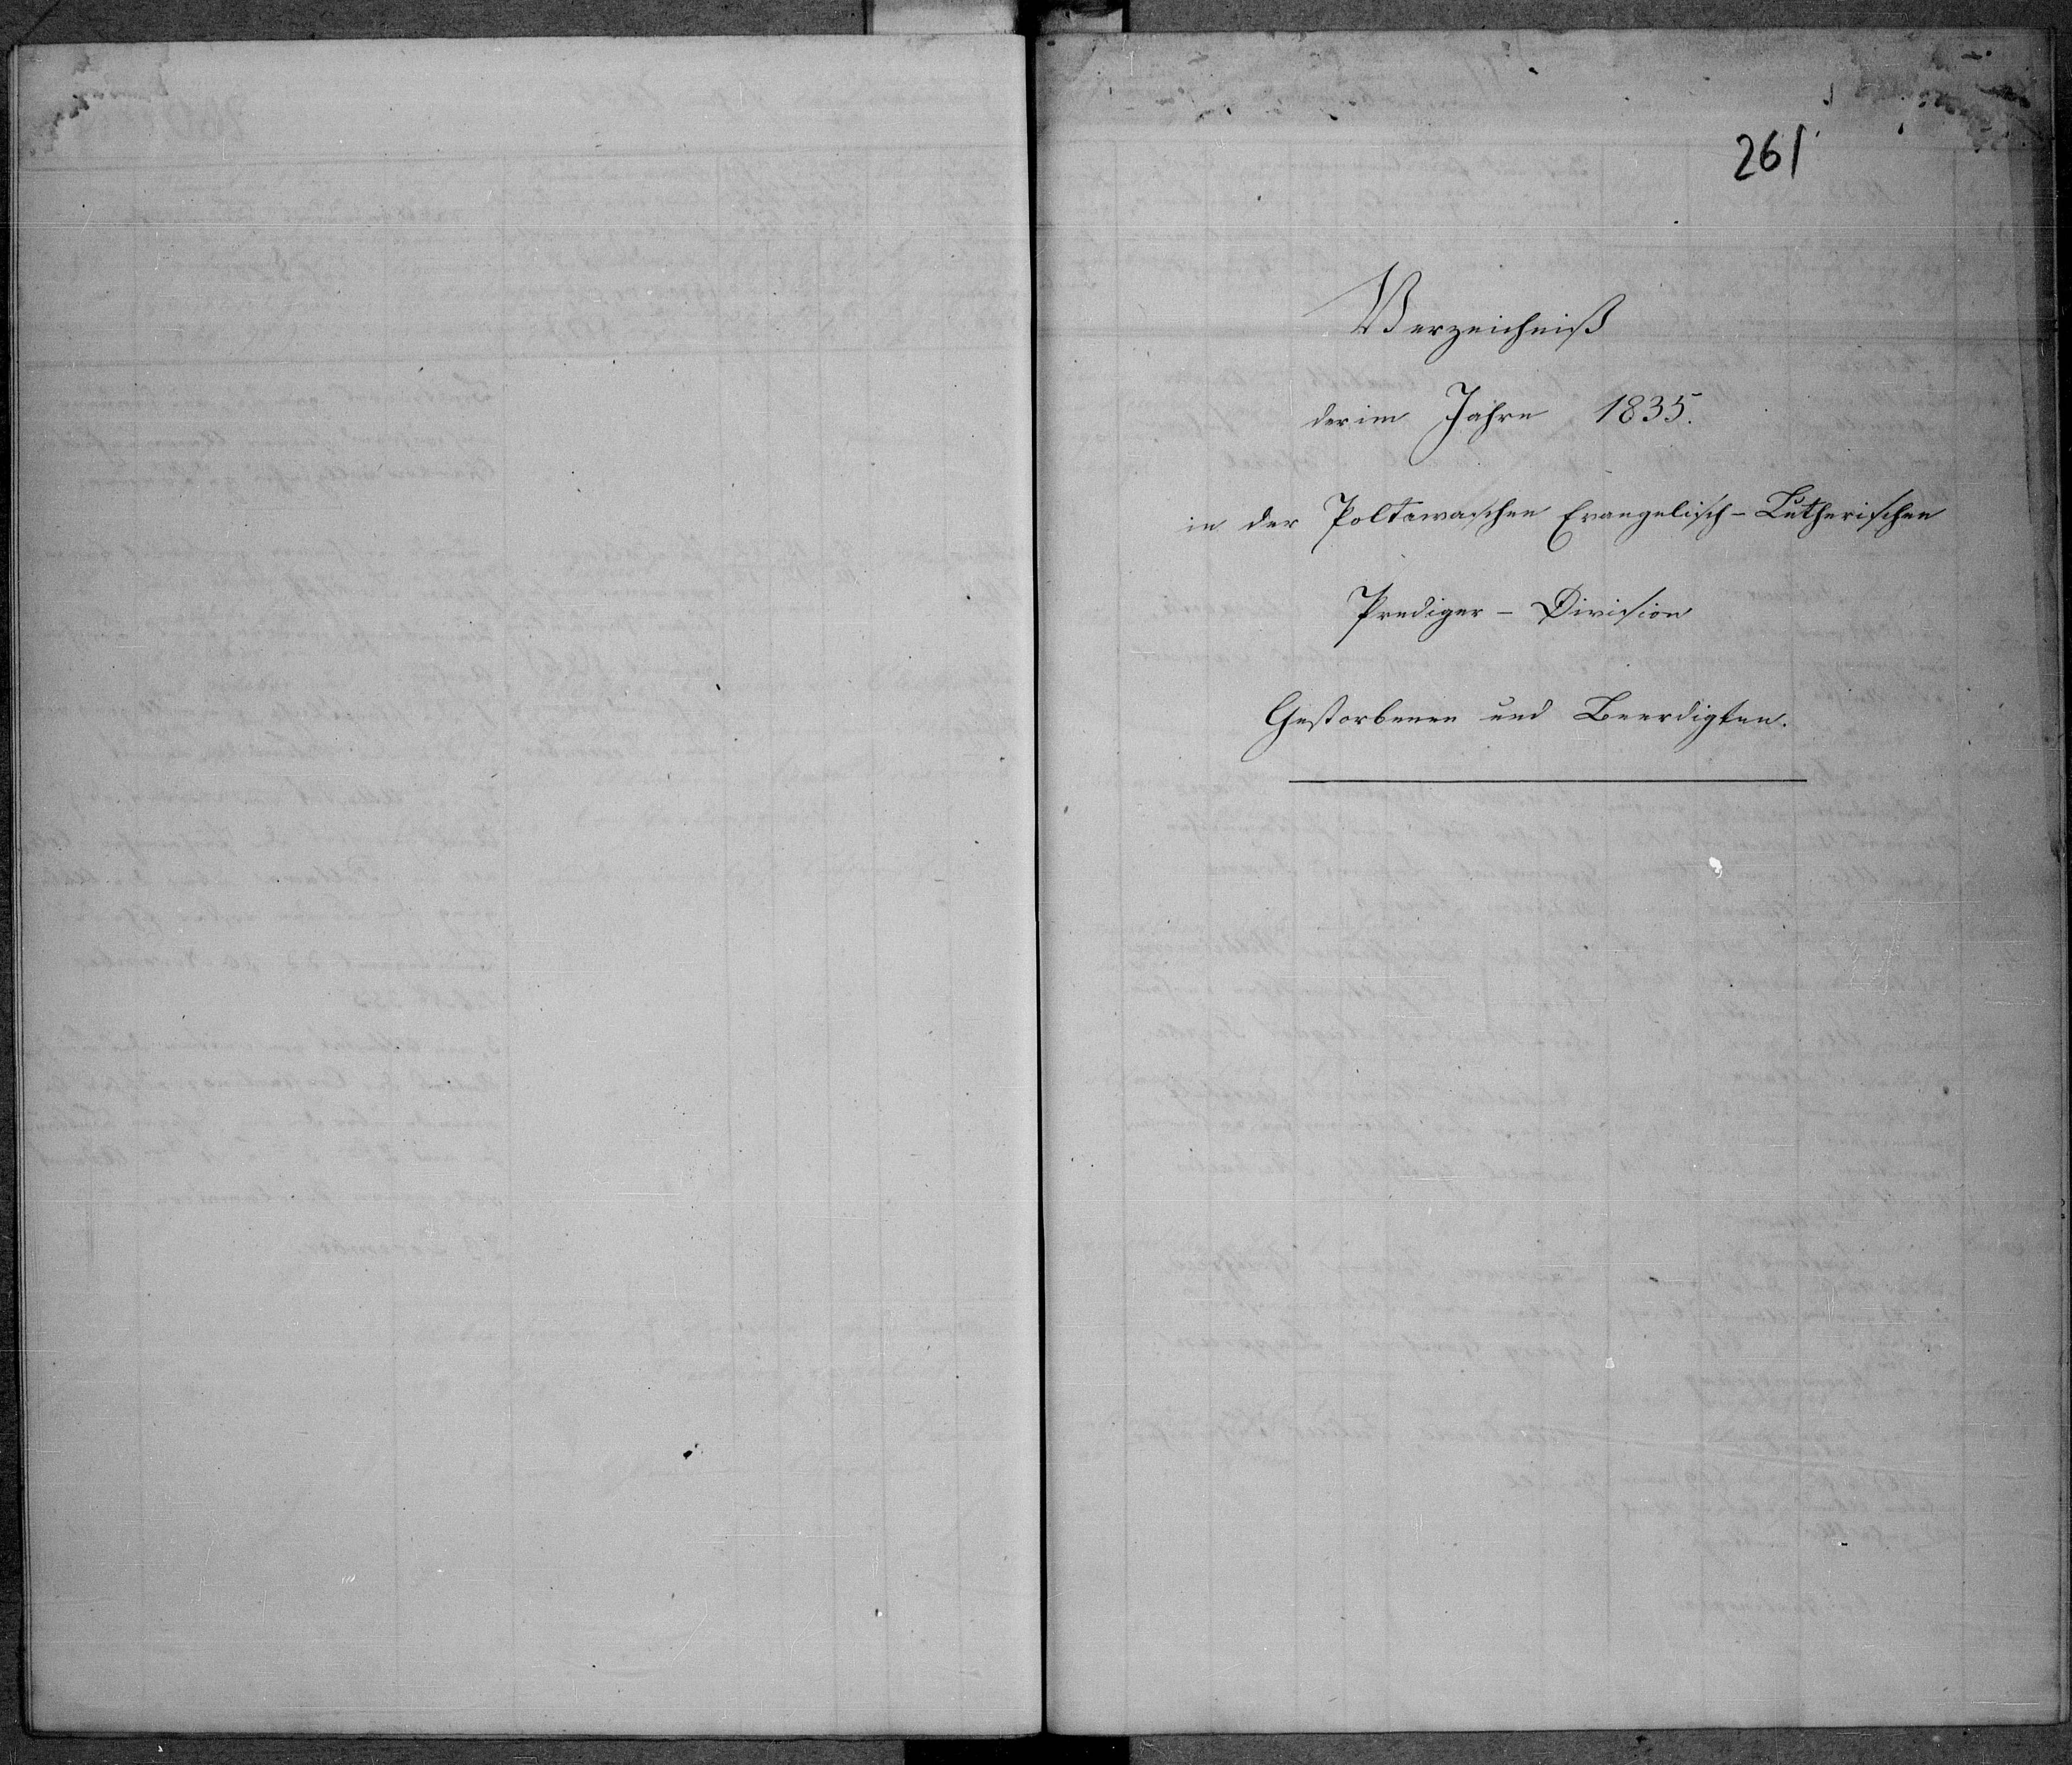 261
Verzeichniß
der im Jahre 1835.
in der Poltawaschen Evangelisch-Lutherischen
Prediger-Division
Gestorbenen und Beerdigten.